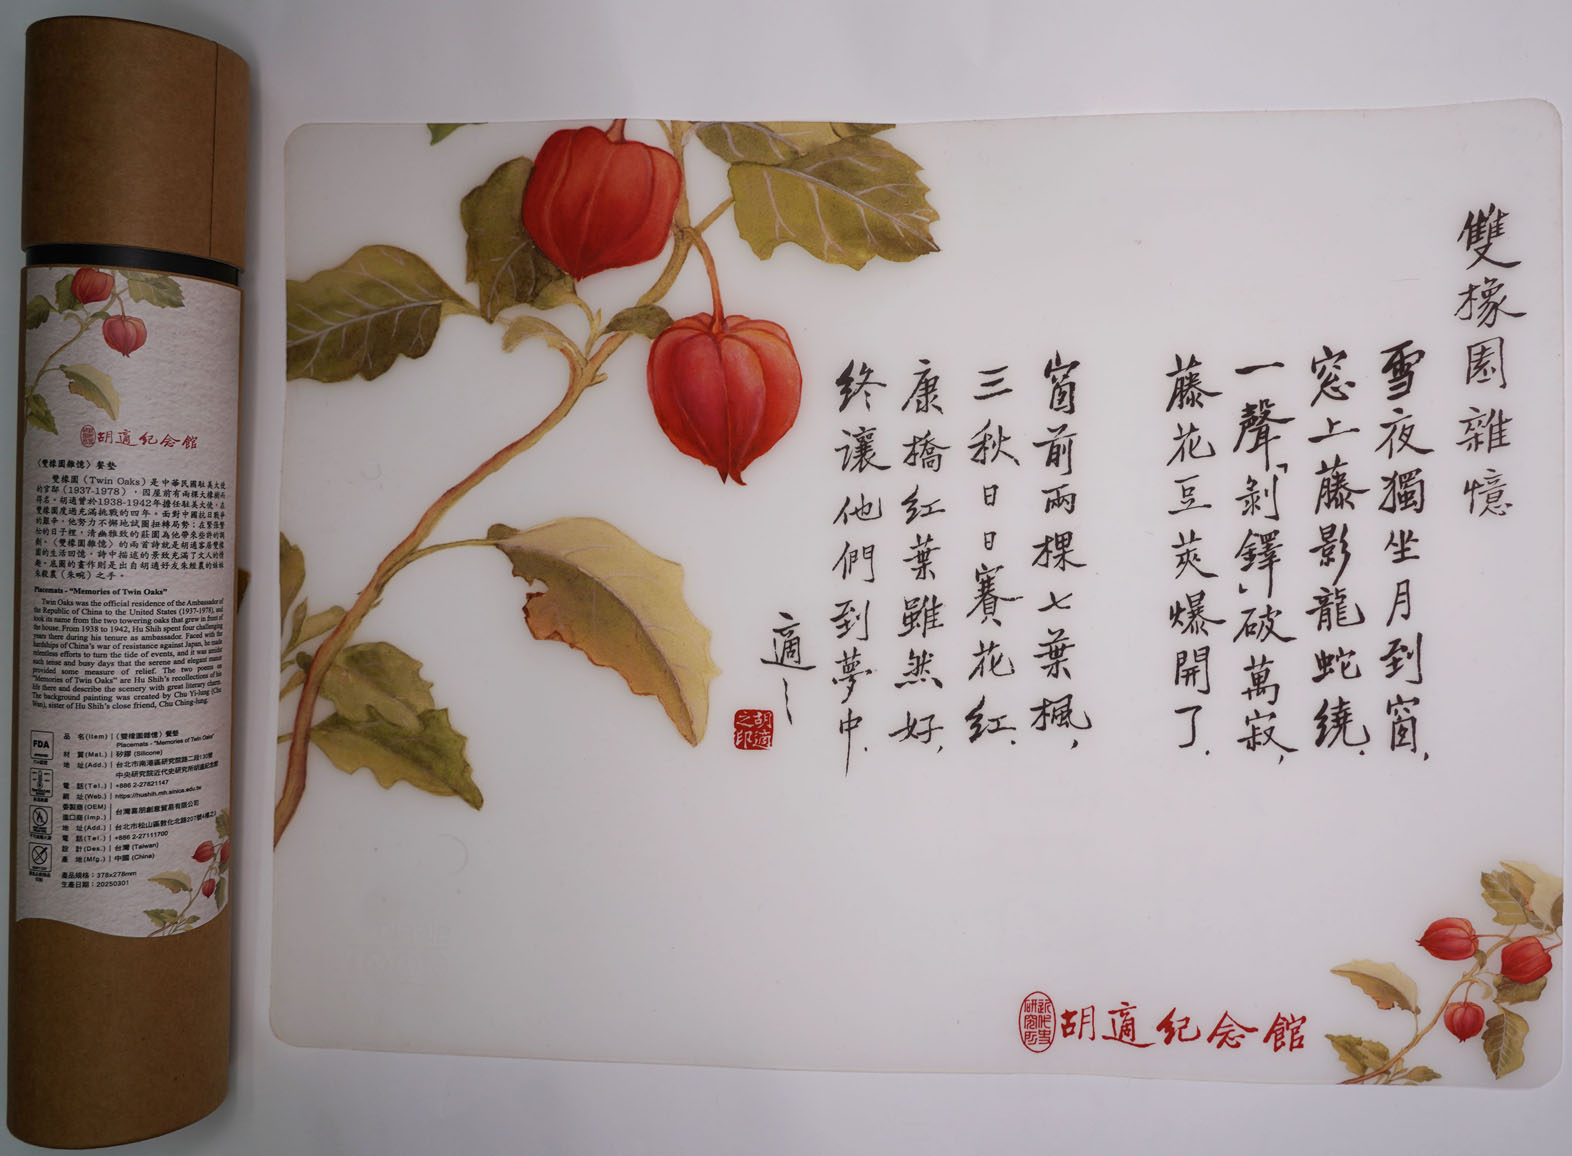 胡適紀念館
〈雙橡園雜憶〉餐墊
雙橡園（Twin Oaks）是中華民國駐美大使
的官邸（1937-1978），因屋前有兩棵大橡樹而
得名。胡適曾於1938-1942年擔任駐美大使，在
雙橡園度過充滿挑戰的四年。面對中國抗日戰爭
的艱辛，他努力不懈地試圖扭轉局勢；在緊張繁
忙的日子裡，清幽雅致的莊園為他帶來些許的調
劑。〈雙橡園雜憶〉的兩首詩就是胡適客居雙橡
園的生活回憶，詩中描述的景致充滿了文人的情
趣。底圖的畫作則是出自胡適好友朱經農的妹妹
朱毅農（朱畹）之手。
Placemats - “Memories of Twin Oaks”
Twin Oaks was the official residence of the Ambassador of
the Republic of China to the United States (1937-1978), and
took its name from the two towering oaks that grew in front of
the house. From 1938 to 1942, Hu Shih spent four challenging
years there during his tenure as ambassador. Faced with the
hardships of China's war of resistance against Japan, he made
relentless efforts to turn the tide of events, and it was amidst
such tense and busy days that the serene and elegant manor
provided some measure of relief. The two poems on
"Memories of Twin Oaks" are Hu Shih's recollections of his
life there and describe the scenery with great literary charm.
The background painting was created by Chu Yi-lung (Chu
Wan), sister of Hu Shih's close friend, Chu Ching-lung.
FDA
品 名(Item)｜〈雙橡園雜憶〉餐墊
Placemats - "Memories of Twin Oaks"
材 質(Mat.)｜矽膠 (Silicone)
地 址(Add.)｜台北市南港區研究院路二段130號
中央研究院近代史研究所胡適紀念館
電 話(Tel.)｜+886 2-27821147
網 址(Web.)｜https://hushih.mh.sinica.edu.tw
委製商(OEM)
進口商(Imp.)｜台灣嘉朋創意貿易有限公司
地 址(Add.)｜台北市松山區敦化北路207號4樓之2
電 話(Tel.)｜+886 2-27111700
設 計(Des.)｜台灣 (Taiwan)
產 地(Mfg.)｜中國 (China)
產品規格：378x278mm
生產日期：20250301
雙橡園雜憶
雪夜獨坐月到窗，
窓上藤影龍蛇繞．
一聲「剝鐸」破萬寂，
藤花豆莢爆開了．
窗前兩棵七葉楓，
三秋日日賽花紅．
康橋紅葉雖然好，
終讓他們到夢中．
適之
胡適之印
近代史研究所
胡適紀念館